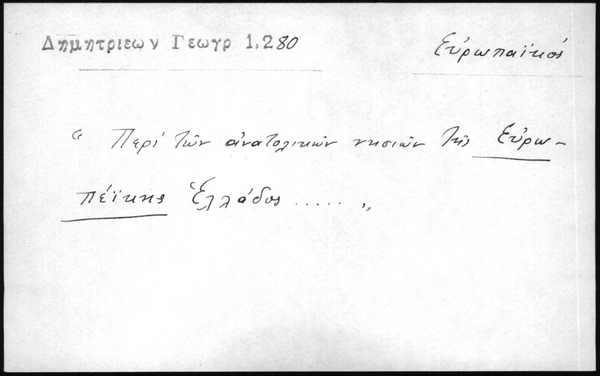 Δημητριεων Γεωγρ 1,280
Εὐρωπαϊκός
“ Περί τῶν ἀνατολικῶν νησιῶν τῆς Εὐρω-
πέϊκης Ἑλλάδος ..... „